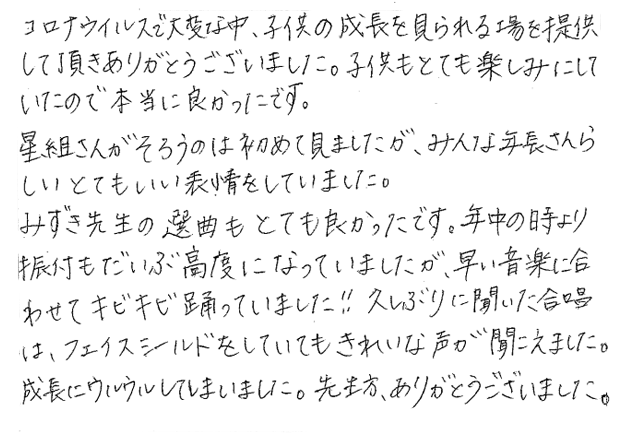 コロナウイルスで大変な中、子供の成長を見られる場を提供
して頂きありがとうございました。子供もとても楽しみにして
いたので本当に良かったです。
星組さんがそろうのは初めて見ましたが、みんな年長さんら
しいとてもいい表情をしていました。
みずき先生の選曲もとても良かったです。年中の時より
振付もだいぶ高度になっていましたが、早い音楽に合
わせてキビキビ踊っていました!! 久しぶりに聞いた合唱
は、フェイスシールドをしていてもきれいな声が聞こえました。
成長にウルウルしてしまいました。先生方、ありがとうございました。